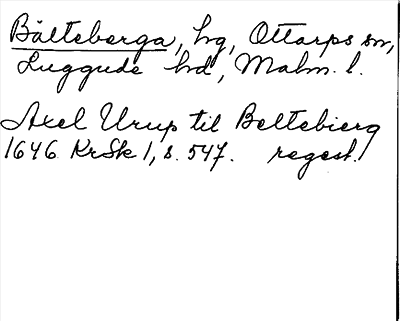 Bälteberga, hg, Ottarps sn,
Luggude hd, Malm. l.
Axel Urup til Beltebierg
1646 KrSk 1, s. 547. regest.